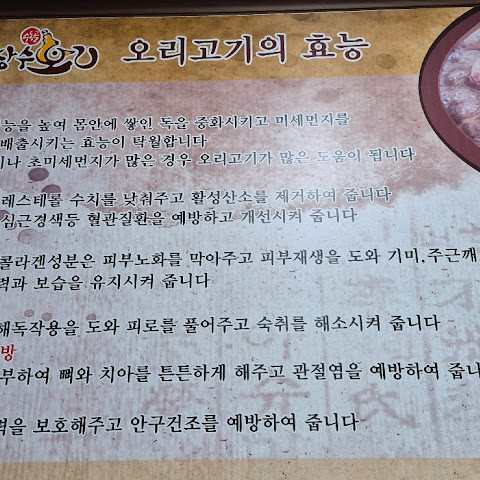 수요리 오리고기의 효능
능을 높여 몸안에 쌓인 독을 중화시키고 미세먼지를
배출시키는 효능이 탁월합니다
나 초미세먼지가 많은 경우 오리고기가 많은 도움이 됩니다
레스테롤 수치를 낮춰주고 활성산소를 제거하여 줍니다
심근경색등 혈관질환을 예방하고 개선시켜 줍니다
콜라겐성분은 피부노화를 막아주고 피부재생을 도와 기미.주근깨
력과 보습을 유지시켜 줍니다
해독작용을 도와 피로를 풀어주고 숙취를 해소시켜 줍니다
방
부하여 뼈와 치아를 튼튼하게 해주고 관절염을 예방하여 줍니
력을 보호해주고 안구건조를 예방하여 줍니다